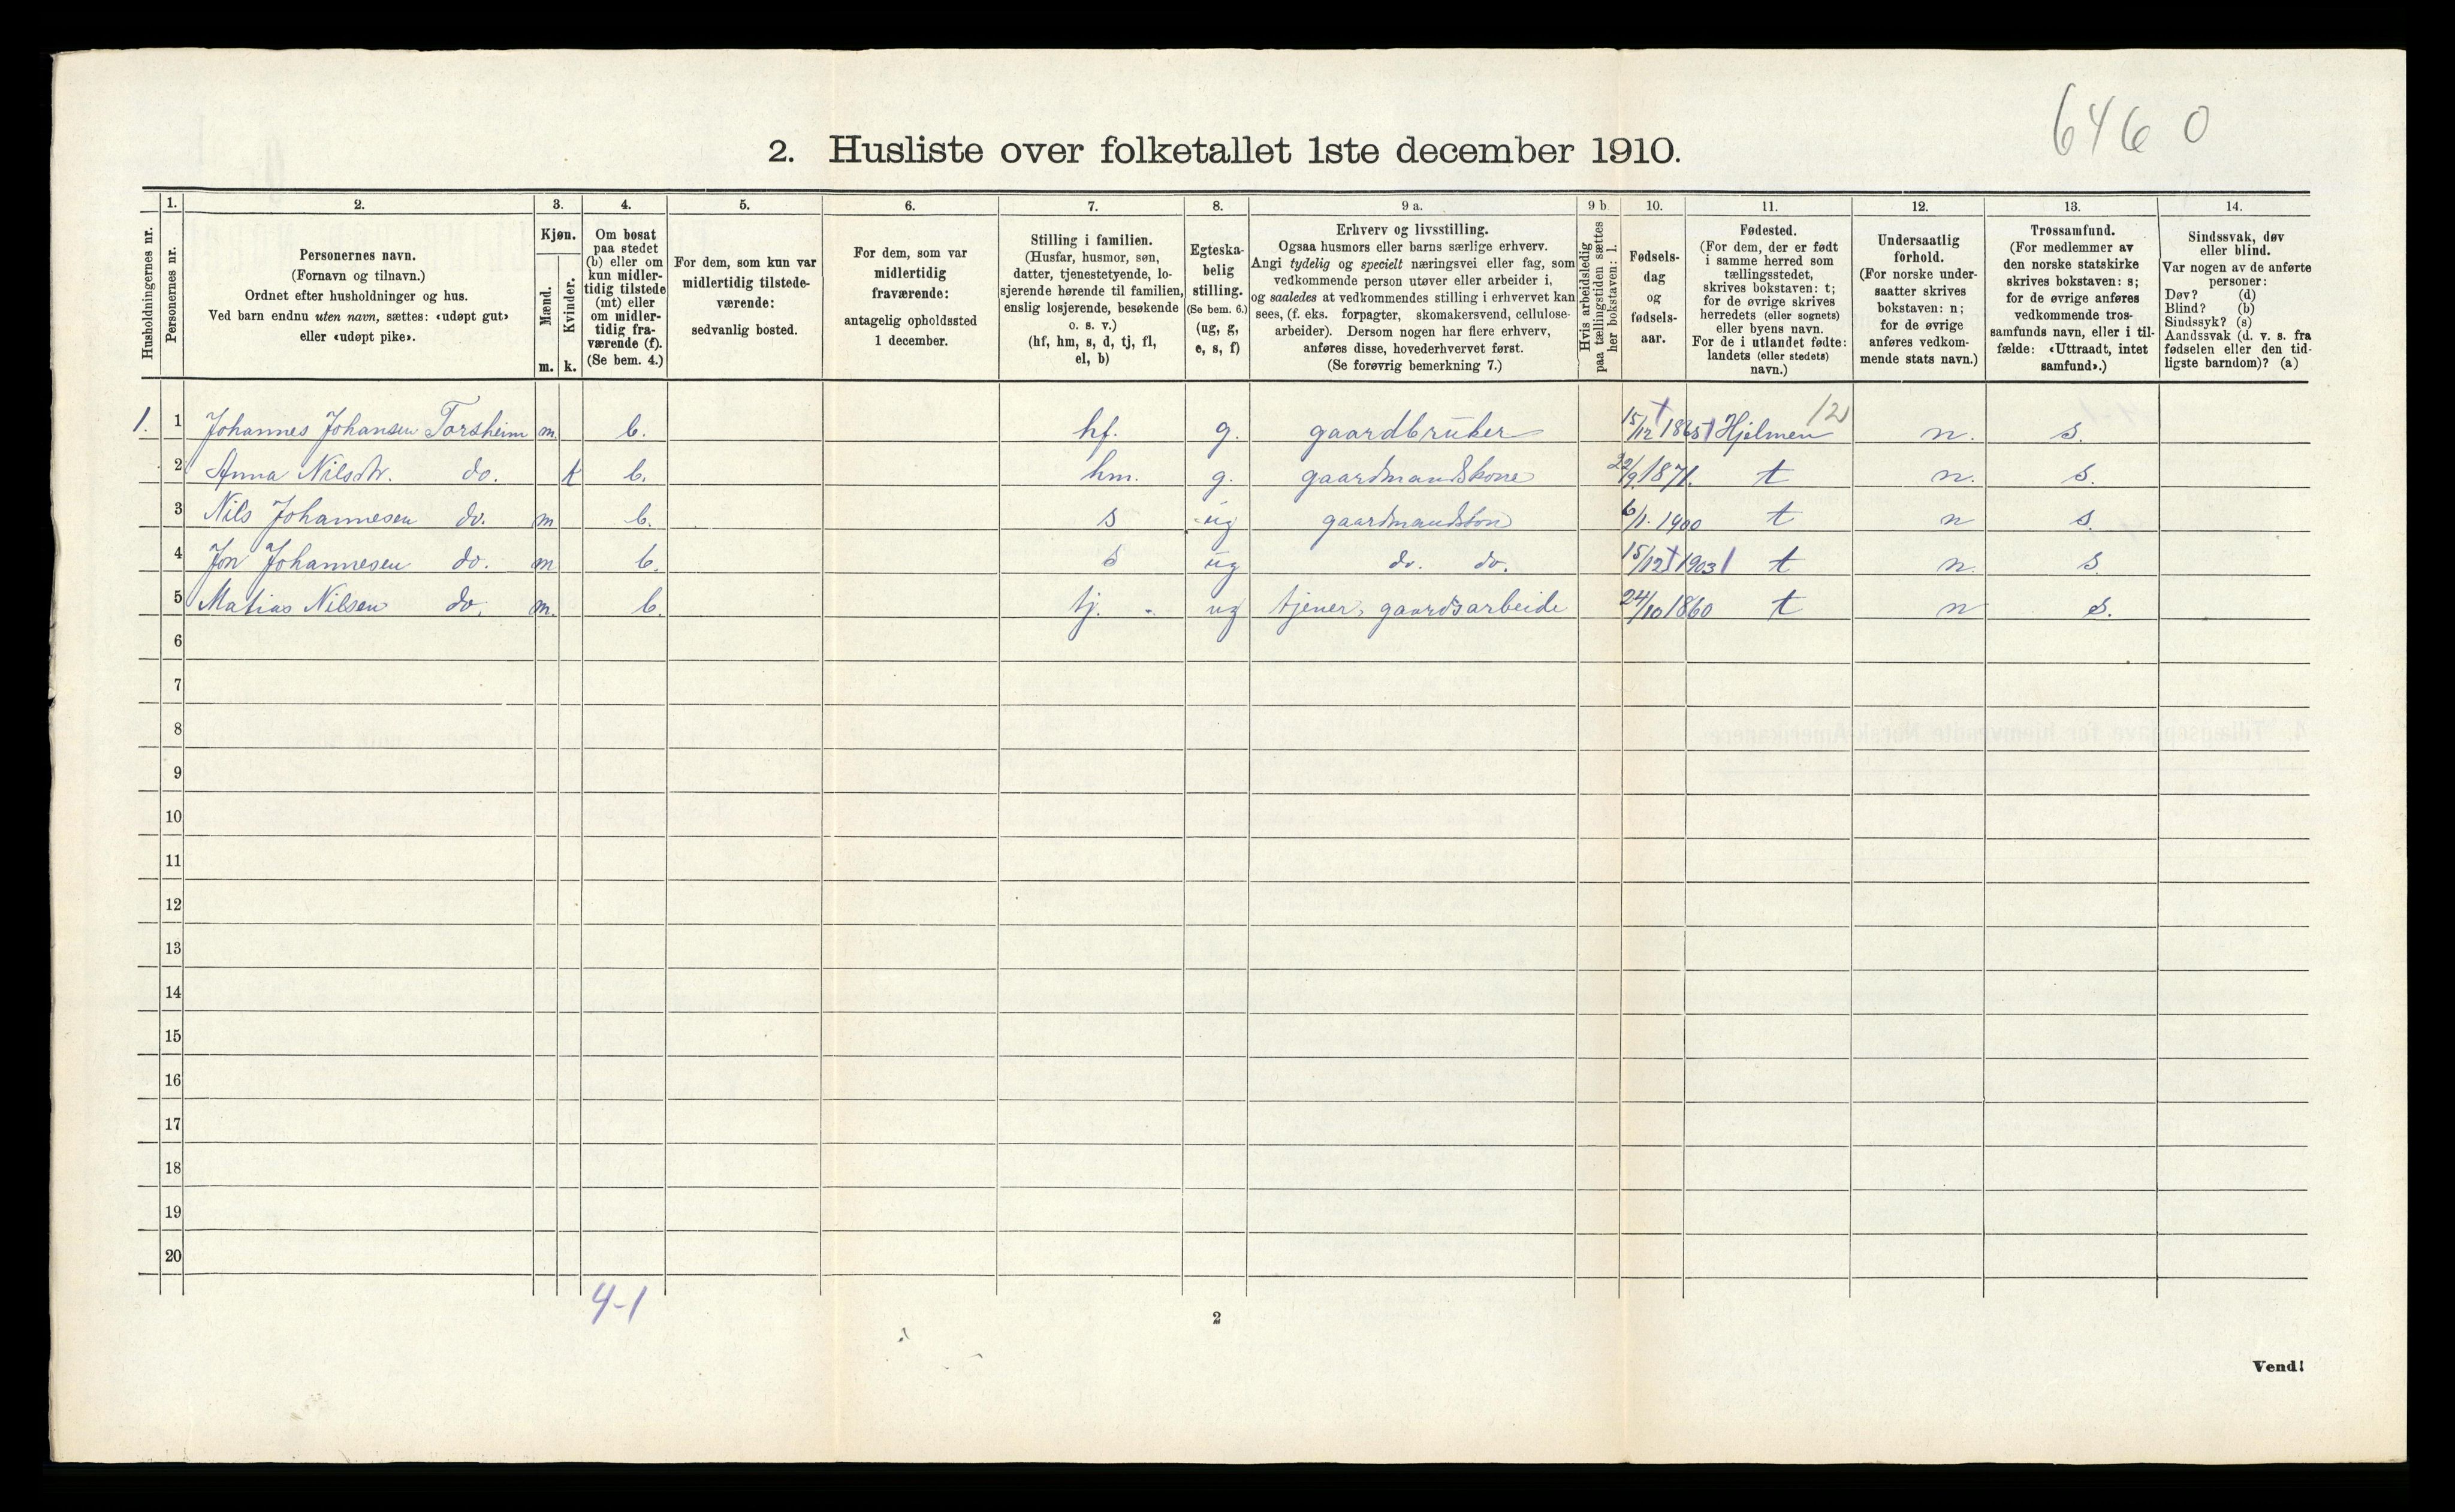 6460
2. Husliste over folketallet 1ste december 1910.
Husholdningernes nr.
1. Personernes nr.
2. Personernes navn.
(Fornavn og tilnavn.)
Ordnet efter husholdninger og hus.
Ved barn endnu uten navn, sættes: «udøpt gut»
eller «udøpt pike».
3. Kjøn.
Mænd. m.
Kvinder. k.
4. Om bosat
paa stedet
(b) eller om
kun midler-
tidig tilstede
(mt) eller
om midler-
tidig fra-
værende (f).
(Se bem. 4.)
5. For dem, som kun var
midlertidig tilstede-
værende:
sedvanlig bosted.
6. For dem, som var
midlertidig
fraværende:
antagelig opholdssted
1 december.
7. Stilling i familien.
(Husfar, husmor, søn,
datter, tjenestetyende, lo-
sjerende hørende til familien,
enslig losjerende, besøkende
o. s. v.)
(hf, hm, s, d, tj, fl,
el, b)
8. Egteska-
belig
stilling.
(Se bem. 6.)
(ug, g,
e, s, f)
9 a. Erhverv og livsstilling.
Ogsaa husmors eller barns særlige erhverv.
Angi tydelig og specielt næringsvei eller fag, som
vedkommende person utøver eller arbeider i,
og saaledes at vedkommendes stilling i erhvervet kan
sees, (f. eks. forpagter, skomakersvend, cellulose-
arbeider). Dersom nogen har flere erhverv,
anføres disse, hovederhvervet først.
(Se forøvrig bemerkning 7.)
9 b. Hvis arbeidsledig
paa tællingstiden sættes
her bokstaven: l.
10. Fødsels-
dag
og
fødsels-
aar.
11. Fødested.
(For dem, der er født
i samme herred som
tællingsstedet,
skrives bokstaven: t;
for de øvrige skrives
herredets (eller sognets)
eller byens navn.
For de i utlandet fødte:
landets (eller stedets)
navn.)
12. Undersaatlig
forhold.
(For norske under-
saatter skrives
bokstaven: n;
for de øvrige
anføres vedkom-
mende stats navn.)
13. Trossamfund.
(For medlemmer av
den norske statskirke
skrives bokstaven: s;
for de øvrige anføres
vedkommende tros-
samfunds navn, eller i til-
fælde: «Uttraadt, intet
samfund».)
14. Sindssvak, døv
eller blind.
Var nogen av de anførte
personer:
Døv? (d)
Blind? (b)
Sindssyk? (s)
Aandssvak (d. v. s. fra
fødselen eller den tid-
ligste barndom)? (a)
12
1. 1 Johannes Johansen Torsheim m. b. hf. g. gaardbruker 15/12 1865 Hjelmen n. s.
2 Anna Nilsdtr. do. k b. hm. g. gaardmandskone 22/9 1871. t n. s.
3 Nils Johannesen do. m b. s ug gaardmandsson 6/1. 1900 t n s.
4 Jon Johannesen do. m b. s ug do. do. 15/12 1903 t n. s.
5 Matias Nilsen do. m. b. tj. - ug tjener, gaardsarbeide 24/10 1860 t n s.
6
7
8
9
10
11
12
13
14
15
16
17
18
19
20
4-1
2
Vend!